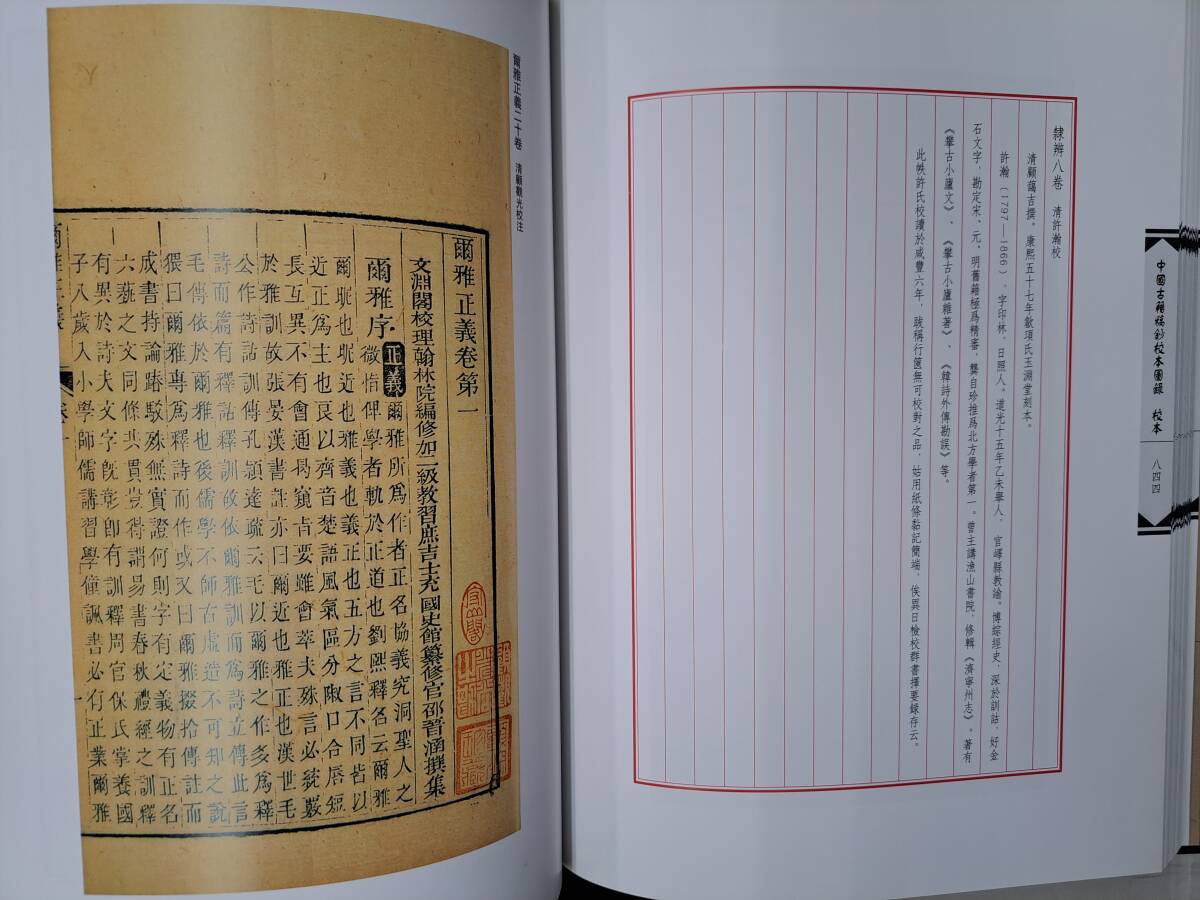 中國古籍稿鈔校本圖錄　校本
八四四
隸辨八卷　清許瀚校
清顧藹吉撰。康熙五十七年歙項氏玉淵堂刻本。
許瀚（1797—1866），字印林，日照人。道光十五年乙未舉人，官嶧縣教諭。博綜經史，深於訓詁，好金
石文字，勘定宋、元、明舊籍極爲精審，龔自珍推爲北方學者第一。曾主講漁山書院，修輯《濟寧州志》。著有
《攀古小廬文》、《攀古小廬雜著》、《韓詩外傳勘誤》等。
此帙許氏校讀於咸豐六年，跋稱行篋無可校對之品，姑用紙條黏記簡端，俟異日檢校群書擇要錄存云。
爾雅正義二十卷　清顧觀光校注
爾雅正義卷第一
文淵閣校理翰林院編修加二級教習庶吉士充國史館纂修官邵晉涵撰集
爾雅序 正義 爾雅所爲作者正名協義究洞聖人之
微恉俾學者軌於正道也劉熙釋名云爾雅
爾昵也昵近也雅義也義正也五方之言不同皆以
近正爲主也良以齊音楚語風氣區分陬口合脣短
長互異不有會通曷窺肯要雖會萃夫殊言必統嚴
於雅訓故張晏漢書註亦曰爾近也雅正也漢世毛
公作詩詁訓傳孔穎達疏云毛以爾雅之作多爲釋
詩而篇有釋詁釋訓故依爾雅訓而爲詩立傳此言
毛傳依於爾雅也後儒學不師古虛造不可知之說
猥曰爾雅專爲釋詩而作或又曰爾雅掇拾傳註而
成書持論踳駁殊無實證何則字有定義物有正名
六蓺之文同條共貫豈得謂易書春秋禮經之訓釋
有異於詩夫文字旣彰卽有訓釋周官保氏掌養國
子八歲入小學師儒講習學僮諷書必有正業爾雅